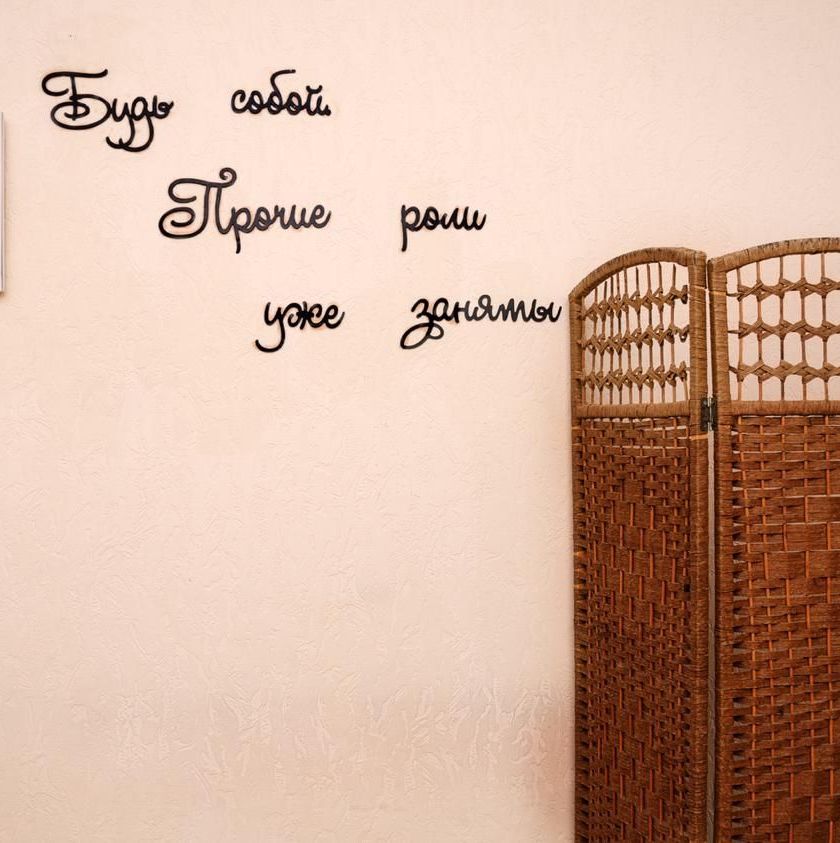 Будь собой.
Прочие роли
уже заняты